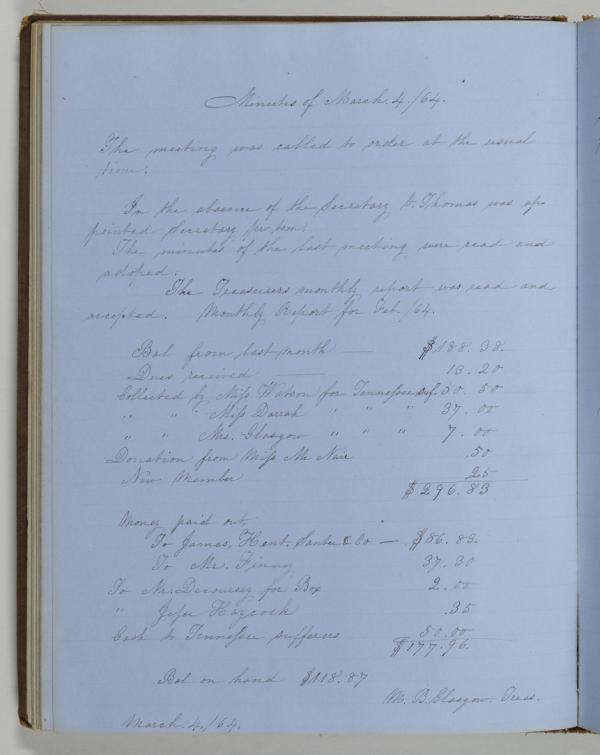 Minutes of March. 4./64.
The meeting was called to order at the usual
time.
In the absence of the Secretary V. Thomas was ap-
pointed Secretary pro tem.
The minutes of the last meeting were read and
adoped.
The Treasurers monthly report was read and
accepted. Monthly Report for Feb./64.
Bal from last month — $188. 38.
Dues received — 13. 20
Collected by Miss Watson for Tennessee suf. 50. 50
" " " Miss Darrah " " " 37. 00
" " Mrs. Glasgow " " " 7. 00
Donation from Miss Mc Nair .50
New Member 25
$296.83
Money paid out,
To James, Kent, Santee & Co — $86. 83.
To Mr. Finney 37. 30
To Mr. Decoursey for Box 2. 00
" Jesse Haycock .35
Cash to Tennessee sufferers 50.00
$177.96.
Bal on hand $118.87
M. B. Glasgow. Treas.
March. 4./64.